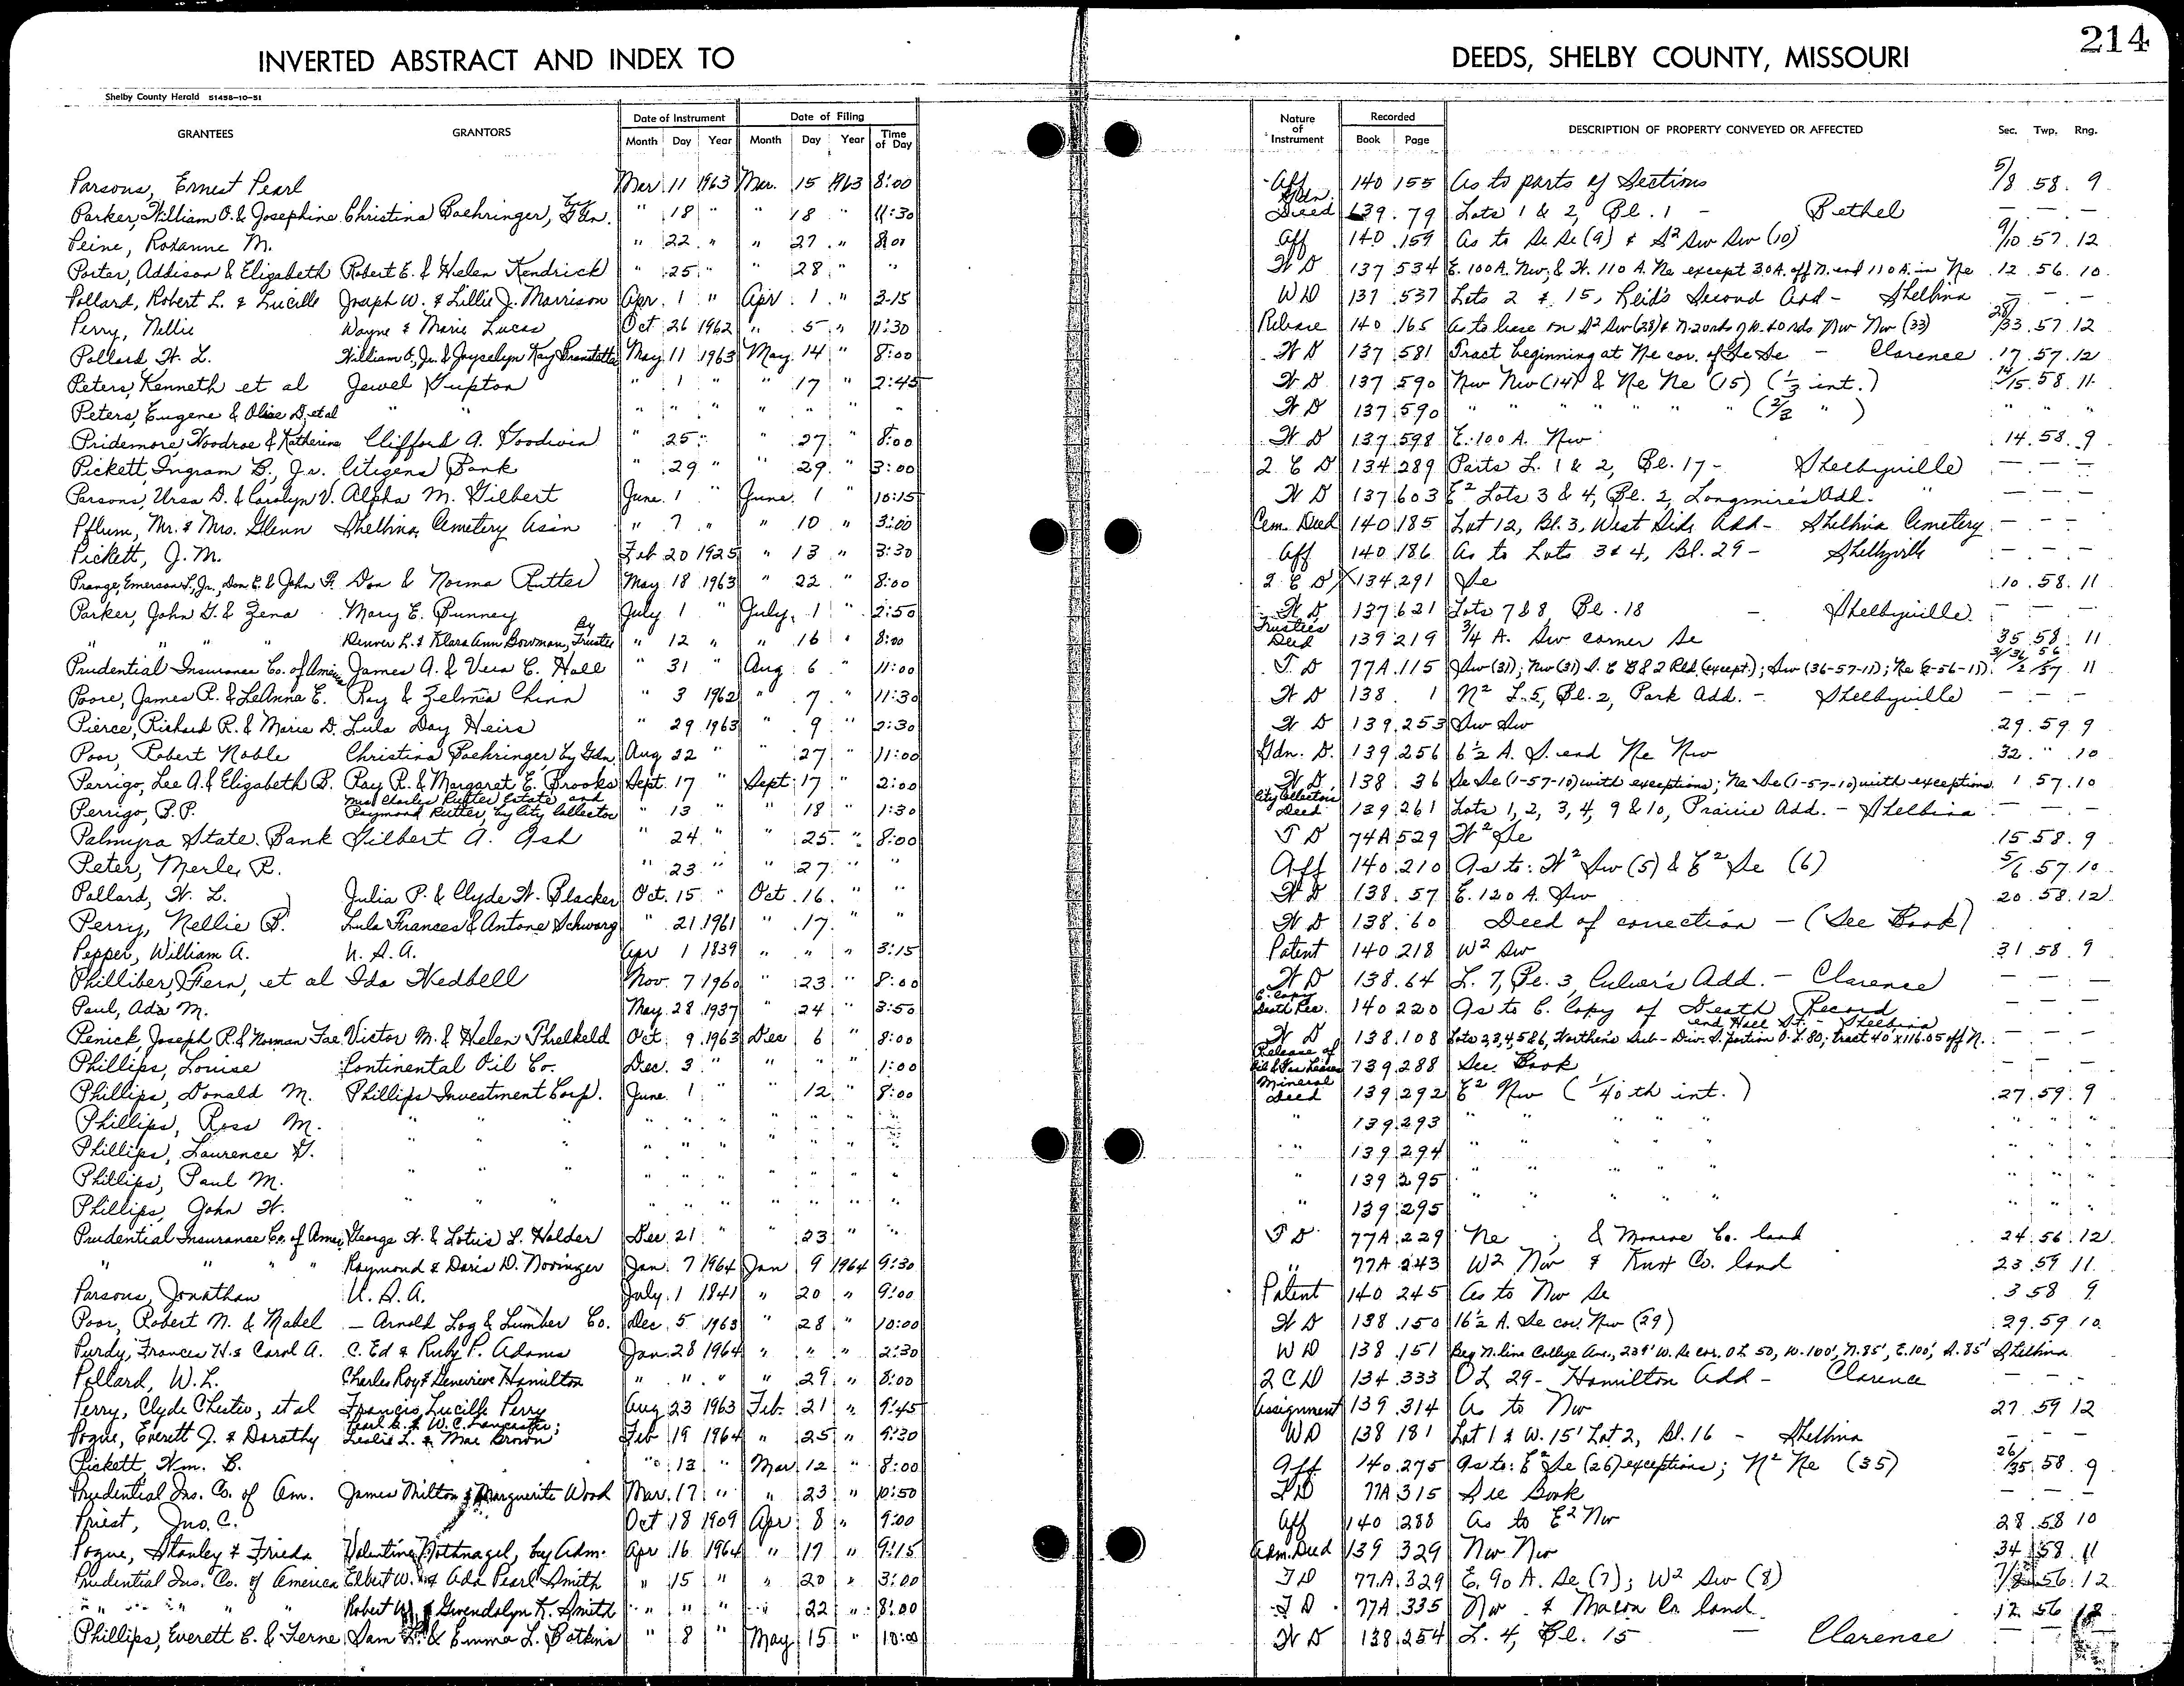 214
INVERTED ABSTRACT AND INDEX TO DEEDS, SHELBY COUNTY, MISSOURI
Shelby County Herald 51458-10-51
GRANTEES GRANTORS Date of Instrument Date of Filing Nature of Instrument Recorded DESCRIPTION OF PROPERTY CONVEYED OR AFFECTED Sec. Twp. Rng.
Month Day Year Month Day Year Time of Day Book Page
Parsons, Ernest Pearl Mar 11 1963 Mar. 15 1963 8:00 Aff 140 155 As to parts of Sections 5/8 58 9
Parker, William O. & Josephine Christina Boehringer, by Gdn. " 18 " " 18 " 11:30 Gdn. Deed 139 79 Lots 1 & 2, Bl. 1 - Bethel — — —
Peine, Roxanne M. " 22 " " 27 " 8:01 Aff 140 159 As to Se Se (9) & S² Sw Sw (10) 9/10 57 12
Porter, Addison & Elizabeth Robert E. & Helen Kendrick " 25 " " 28 " " W D 137 534 E. 100 A. Nw; & W. 110 A. Ne except 30A. off N. end 110 A. in Ne 12 56 10
Pollard, Robert L. & Lucille Joseph W. & Lillie J. Morrison Apr. 1 " Apr. 1 " 3-15 WD 137 537 Lots 2 & 15, Reid's Second Add - Shelbina — — —
Perry, Nellie Wayne & Marie Lucas Oct 26 1962 " 5 " 11:30 Release 140 165 As to lease on S² Sw (28) & N. 20 rds of W. 40 rds Nw Nw (33) 28/33 57 12
Pollard W. L. William E., Jr. & Joycelyn Kay Branstetter May 11 1963 May 14 " 8:00 W D 137 581 Tract beginning at Ne cor. of Se Se - Clarence 17 57 12
Peters, Kenneth et al Jewel Gupton " 1 " " 17 " 2:45 W D 137 590 Nw Nw (14) & Ne Ne (15) (1/3 int.) 14/15 58 11
Peters, Eugene & Olive D. et al " " " " " " " " " W D 137 590 " " " " " " (2/3 " ) " " "
Pridemore, Woodroe & Katherine Clifford A. Goodwin " 25 " " 27 " 8:00 W D 137 598 E. 100 A. Nw 14 58 9
Pickett, Ingram B., Jr. Citizens Bank " 29 " " 29 " 3:00 2 C D 134 289 Parts L. 1 & 2, Bl. 17 - Shelbyville — — —
Parsons, Ursa D. & Carolyn V. Alpha M. Gilbert June 1 " June 1 " 10:15 W D 137 603 E² Lots 3 & 4, Bl. 2, Longmire's Add. " — — —
Pflum, Mr. & Mrs. Glenn Shelbina Cemetery Assn " 7 " " 10 " 3:00 Cem. Deed 140 185 Lot 12, Bl. 3, West Side Add - Shelbina Cemetery — — —
Pickett, J. M. Feb 20 1925 " 13 " 3:30 Aff 140 186 As to Lots 3 & 4, Bl. 29 - Shelbyville — — —
Prange, Emerson L., Jr., Don E. & John F. Don & Norma Rutter May 18 1963 " 22 " 8:00 2 C D 134 291 Se 10 58 11
Parker, John G. & Zena Mary E. Bunney July 1 " July 1 " 2:50 W D 137 621 Lots 7 & 8 Bl. 18 - Shelbyville — — —
" " " " Denver L. & Klara Ann Bowman, By Trustee " 12 " " 16 " 8:00 Trustees Deed 139 219 3/4 A. Sw corner Se 35 58 11
Prudential Insurance Co. of America James A. & Vera C. Hall " 31 " Aug 6 " 11:00 T. D 77A 115 Sw (31); Nw (31) S. E. B & 2 Rd (except.); Sw (36-57-11); Ne (2-56-11) 31/36/2 56/57 11
Poore, James R. & LeAnna E. Ray & Zelma Chinn " 3 1962 " 7 " 11:30 W D 138 1 N² L. 5, Bl. 2, Park Add. - Shelbyville — — —
Pierce, Richard R. & Marie D. Lula Day Heirs " 29 1963 " 9 " 2:30 W D 139 253 Sw Sw 29 59 9
Poor, Robert Noble Christina Boehringer, by Gdn. Aug 22 " " 27 " 11:00 Gdn. D. 139 256 6½ A. S. end Ne Nw 32 " 10
Perrigo, Lee A. & Elizabeth B. Ray R. & Margaret E. Brooks Sept. 17 " Sept 17 " 2:00 W D 138 36 Se Se (1-57-10) with exceptions; Ne Se (1-57-10) with exceptions 1 57 10
Perrigo, B. P. Mrs. Charles Rutter Estate and Raymond Rutter, by City Collector " 13 " " 18 " 1:30 City Collectors Deed 139 261 Lots 1, 2, 3, 4, 9 & 10, Prairie Add. - Shelbina — — —
Palmyra State Bank Gilbert A. Ash " 24 " " 25 " 8:00 T D 74A 529 W² Se 15 58 9
Peter, Merle R. " 23 " " 27 " " Aff 140 210 As to: W² Sw (5) & E² Se (6) 5/6 57 10
Pollard, W. L. Julia P. & Clyde W. Blacker Oct. 15 " Oct. 16 " " W D 138 57 E. 120 A. Sw 20 58 12
Perry, Nellie B. Lula Frances & Antone Schwarg " 21 1961 " 17 " " W D 138 60 Deed of correction - (See Book)
Pepper, William A. U. S. A. Apr 1 1839 " " " 3:15 Patent 140 218 W² Sw 31 58 9
Philliber, Fern, et al Ida Hedbell Nov. 7 1960 " 23 " 8:00 W D 138 64 L. 7, Bl. 3, Culver's Add. - Clarence — — —
Paul, Ada M. May 28 1937 " 24 " 3:50 C. Copy Death Rec. 140 220 As to C. Copy of Death Record — — —
Penick, Joseph R. & Norman Fae Victor M. & Helen Threlkeld Oct. 9 1963 Dec 6 " 8:00 W D 138 108 Lots 2,3,4,5 & 6, Worthen's Sub-Div. S. portion O. L. 80; tract 40'x116.05 off N. end Hall St. - Shelbina — — —
Phillips, Louise Continental Oil Co. Dec. 3 " " " " 1:00 Release of Oil & Gas Leases 139 288 See Book — — —
Phillips, Donald M. Phillips Investment Corp. June 1 " " 12 " 8:00 Mineral Deed 139 292 E² Nw (1/40 th int.) 27 59 9
Phillips, Ross M. " " " " " " " " " " " 139 293 " " " " " " "
Phillips, Laurence G. " " " " " " " " " " " 139 294 " " " " " " "
Phillips, Paul M. " " " " " " " " " " " 139 295 " " " " " " "
Phillips, John W. " " " " " " " " " " " 139 295 " " " " " " "
Prudential Insurance Co. of Amer. George W. & Lotus L. Holder Dec 21 " " 23 " " T D 77A 229 Ne ; & Monroe Co. land 24 56 12
" " " " Raymond & Doris D. Novinger Jan. 7 1964 Jan 9 1964 9:30 " 77A 243 W² Nw & Knox Co. land 23 59 11
Parsons, Jonathan U. S. A. July 1 1841 " 20 " 9:00 Patent 140 245 As to Nw Se 3 58 9
Poor, Robert N. & Mabel - Arnold Log & Lumber Co. Dec. 5 1963 " 28 " 10:00 W D 138 150 16½ A. Se cor. Nw (29) 29 59 10
Purdy, Frances H. & Carol A. C. Ed & Ruby P. Adams Jan 28 1964 " " " 2:30 W D 138 151 Beg N. line College Ave., 239' W. Se cor. OL 50, W. 100', N. 85', E. 100', S. 85' Shelbina
Pollard, W. L. Charles Roy & Genevieve Hamilton " " " " 29 " 8:00 2 C D 134 333 OL 29 - Hamilton Add - Clarence — — —
Perry, Clyde Chester, et al Francis Lucille Perry Aug 23 1963 Feb. 21 " 9:45 Assignment 139 314 As to Nw 27 59 12
Pogue, Everett J. & Dorothy Pearl B. & W. C. Lancaster; Leslie L. & Mae Brown Feb 19 1964 " 25 " 9:30 WD 138 181 Lot 1 & W. 15' Lot 2, Bl. 16 - Shelbina — — —
Pickett, Wm. B. " 13 " Mar 12 " 8:00 Aff 140 275 As to: E² Se (26) exceptions; N² Ne (35) 26/35 58 9
Prudential Ins. Co. of Am. James Milton & Marguerite Wood Mar. 17 " " 23 " 10:50 TD 77A 315 See Book — — —
Priest, Jno. C. Oct 18 1909 Apr 8 " 9:00 Aff 140 288 As to E² Nw 28 58 10
Pogue, Stanley & Frieda Valentine Nothnagel, by Adm. Apr 16 1964 " 17 " 9:15 Adm. Deed 139 329 Nw Nw 34 58 11
Prudential Ins. Co. of America Elbert W. & Ada Pearl Smith " 15 " " 20 " 3:00 T D 77A 329 E. 90 A. Se (7); W² Sw (8) 7/8 56 12
" " " " " Robert W. & Gwendolyn K. Smith " " " " 22 " 8:00 T D 77A 335 Nw & Macon Co. land 12 56 12
Phillips, Everett C. & Ferne Sam L. & Emma L. Botkins " 8 " May 15 " 10:00 W D 138 254 L. 4, Bl. 15 - Clarence — —